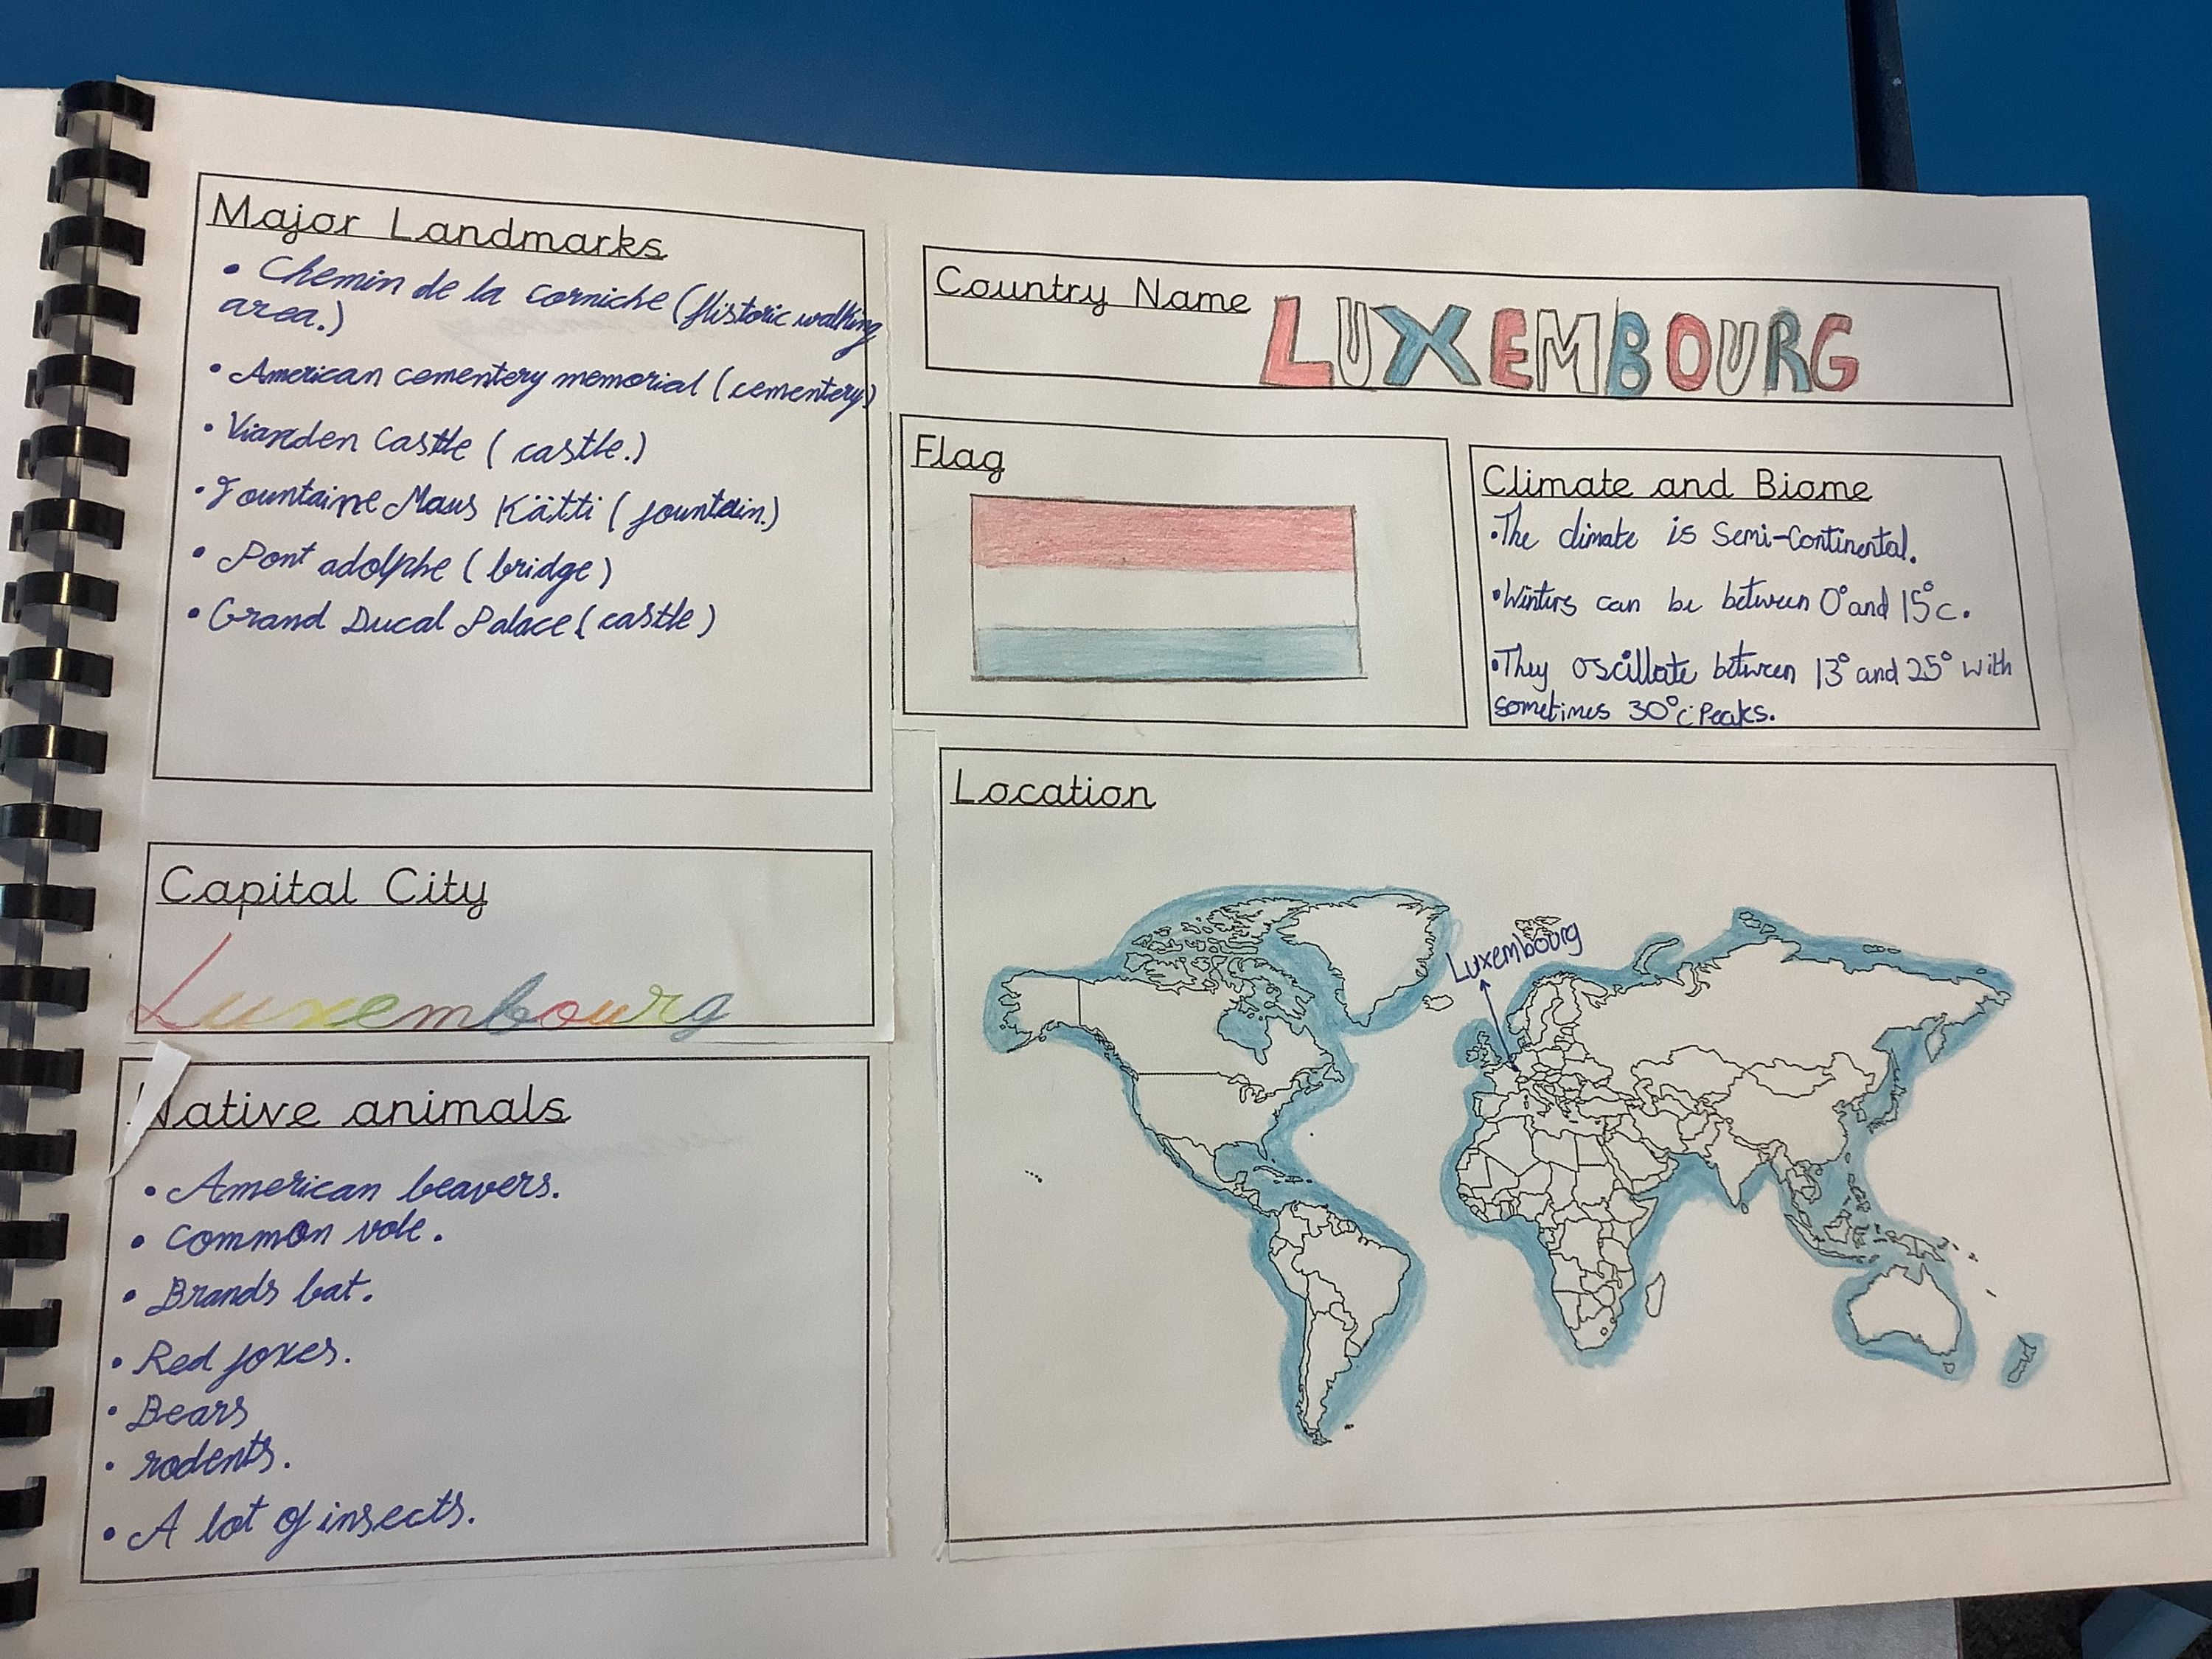 Major Landmarks
• Chemin de la corniche (Historic walking
area.)
• American cementery memorial (cementery)
• Vianden Castle ( castle.)
• Fountaine Maus Kätti ( fountain.)
• Pont adolphe ( bridge )
• Grand Ducal Palace ( castle )
Capital City
Luxembourg
Native animals
• American beavers.
• Common vole.
• Brands bat.
• Red foxes.
• Bears
• rodents.
• A lot of insects.
Country Name LUXEMBOURG
Flag
Climate and Biome
•The climate is Semi-Continental.
•Winters can be between 0° and 15°c.
•They oscillate between 13° and 25° with
sometimes 30°c Peaks.
Location
Luxembourg